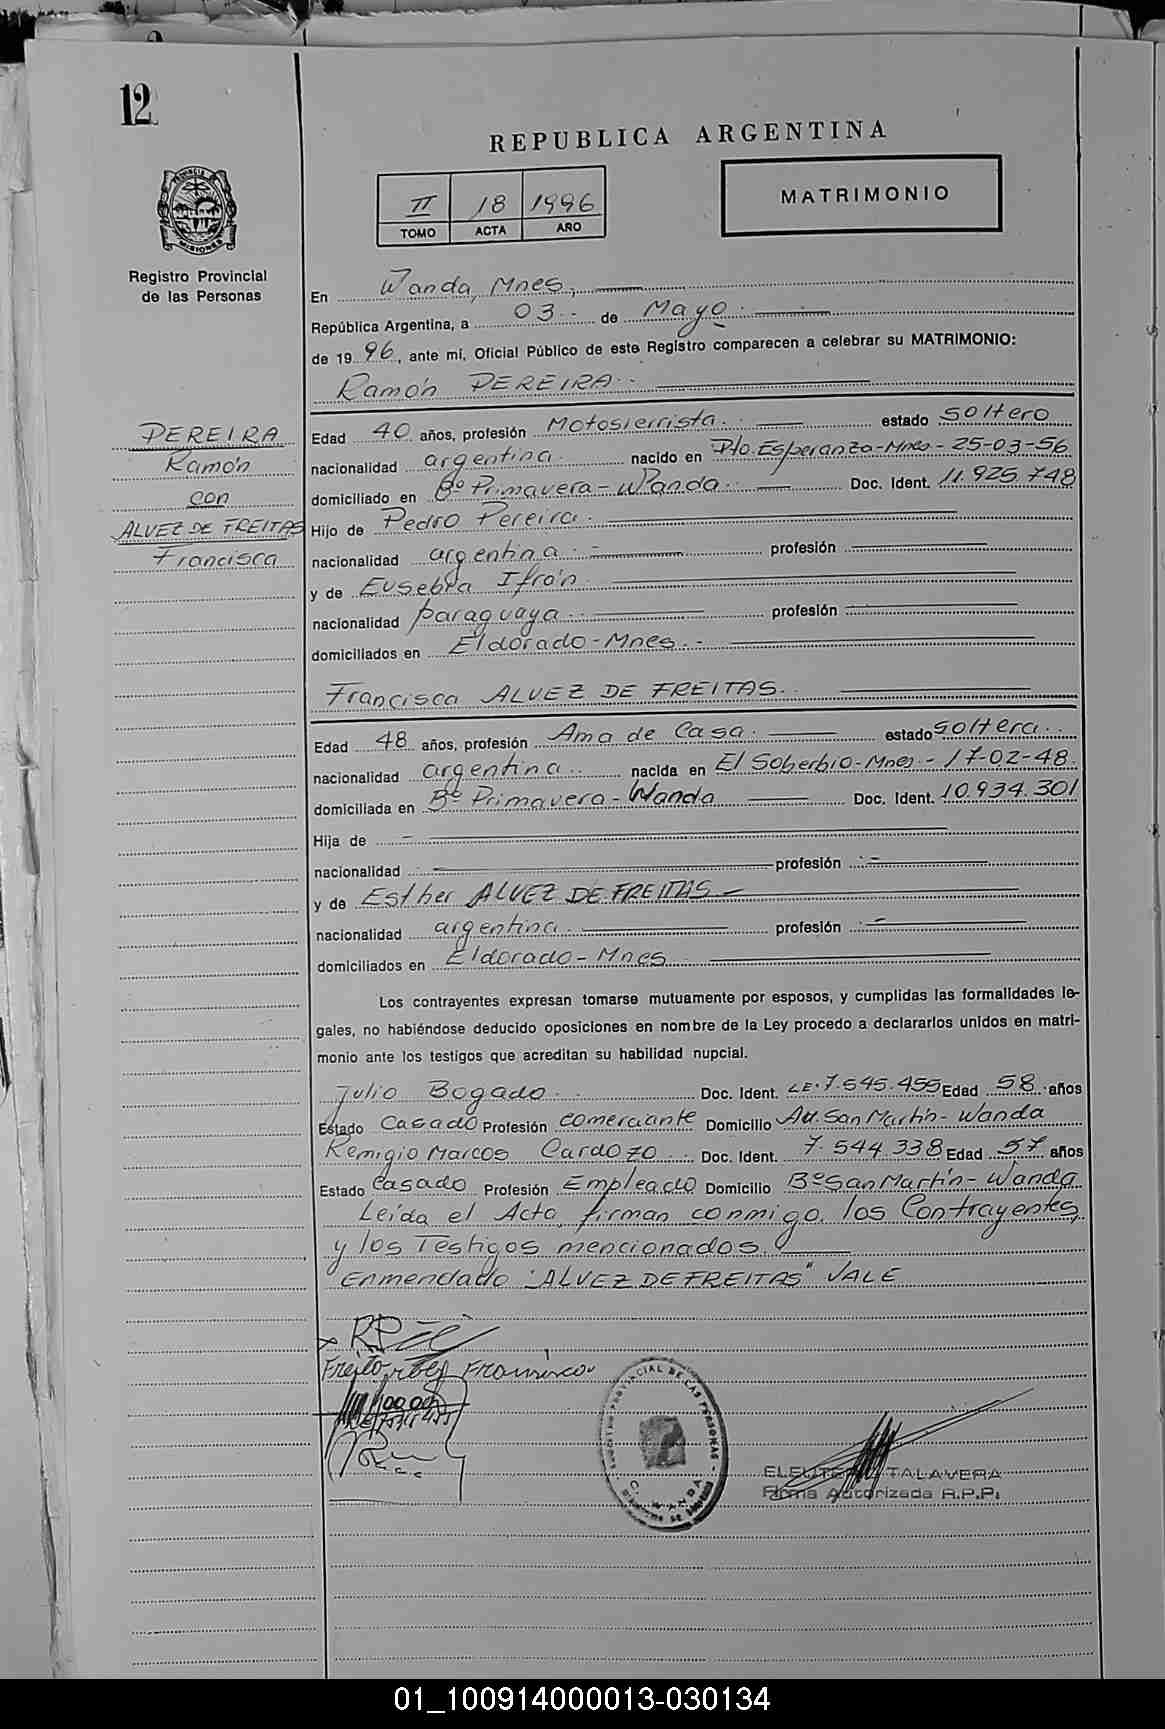 12
REPUBLICA ARGENTINA
II 18 1996
TOMO ACTA AÑO
MATRIMONIO
Registro Provincial
de las Personas
En Wanda, Mnes,
República Argentina, a 03 de Mayo
de 1996, ante mí, Oficial Público de este Registro comparecen a celebrar su MATRIMONIO:
Ramón PEREIRA
PEREIRA
Ramón
con
ALVEZ DE FREITAS
Francisca
Edad 40 años, profesión Motosierrista. estado Soltero
nacionalidad argentina nacido en Pto. Esperanza-Mnes-25-03-56
domiciliado en Bº Primavera-Wanda Doc. Ident. 11.925.748
Hijo de Pedro Pereira
nacionalidad argentina profesión
y de Eusebia Ifrán
nacionalidad paraguaya profesión
domiciliados en Eldorado-Mnes.
Francisca ALVEZ DE FREITAS.
Edad 48 años, profesión Ama de Casa. estado Soltera
nacionalidad argentina nacida en El Soberbio-Mnes-17-02-48
domiciliada en Bº Primavera-Wanda Doc. Ident. 10.934.301
Hija de
nacionalidad profesión
y de Esther ALVEZ DE FREITAS
nacionalidad argentina. profesión
domiciliados en Eldorado-Mnes
Los contrayentes expresan tomarse mutuamente por esposos, y cumplidas las formalidades le-
gales, no habiéndose deducido oposiciones en nombre de la Ley procedo a declararlos unidos en matri-
monio ante los testigos que acreditan su habilidad nupcial.
Julio Bogado Doc. Ident. LE.7.545.455 Edad 58 años
Estado Casado Profesión comerciante Domicilio Av. San Martín-Wanda
Remigio Marcos Cardozo Doc. Ident. 7.544.338 Edad 57 años
Estado Casado Profesión Empleado Domicilio Bº San Martín-Wanda
Leída el Acta, firman conmigo, los Contrayentes,
y los Testigos mencionados.
Enmendado "ALVEZ DE FREITAS" VALE
ELEUTERIO TALAVERA
Firma Autorizada R.P.P.
WANDA
01_100914000013-030134